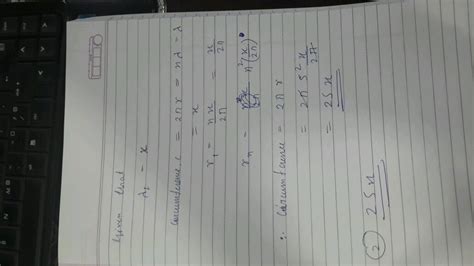 Given that
λ₁ = x
Circumference = 2πr = nλ = λ
= x
r₁ = nx/2π = x/2π
rₙ = n²(x/2π)
∴ Circumference = 2πr
= 2π 5² x/2π
= 25x
② 25x